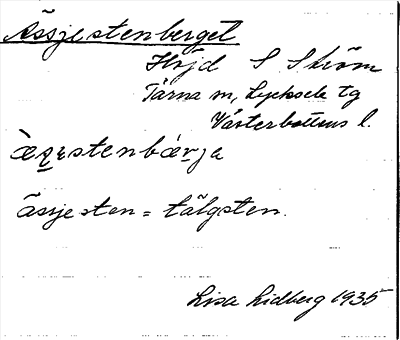 Åssjestenberget
Höjd S Ström
Tärna sn, Lycksele tg
Västerbottens l.
åssjesten = tälgsten.
Lisa Lidberg 1935